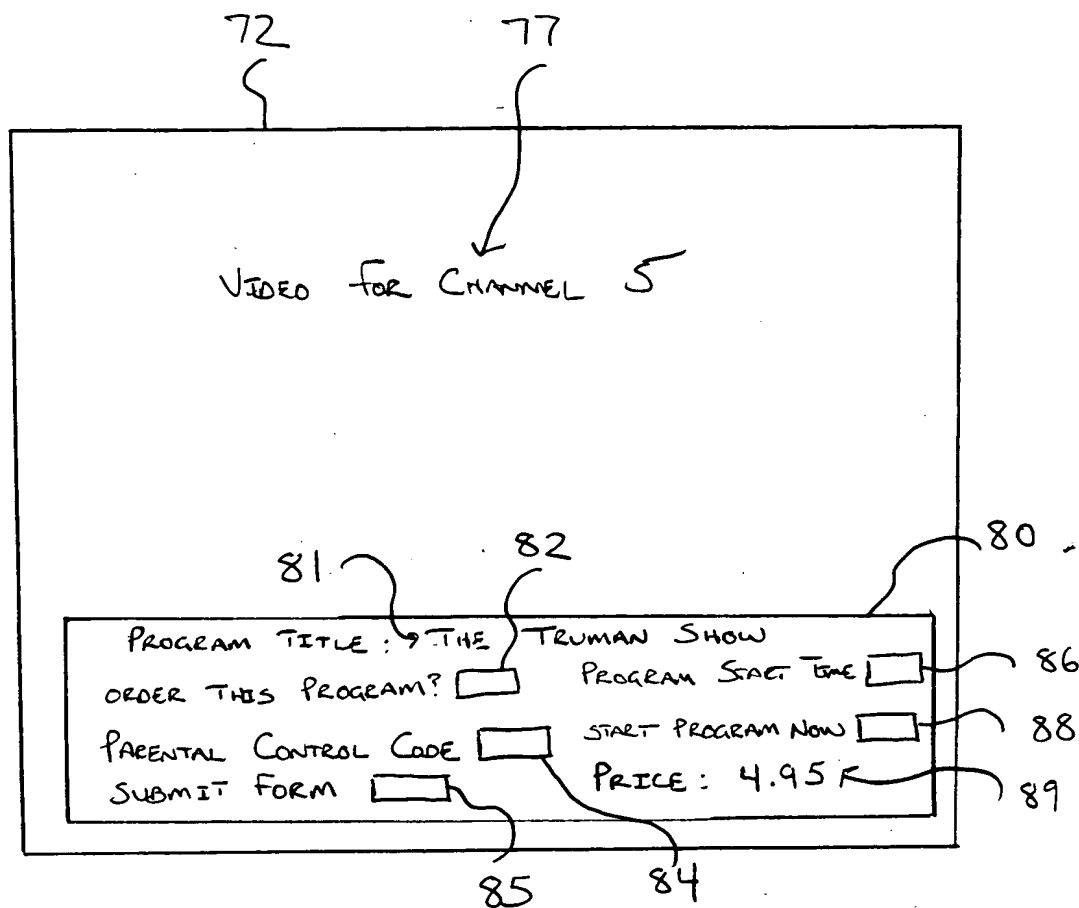 72 77
VIDEO FOR CHANNEL 5
81 82 80
PROGRAM TITLE: THE TRUMAN SHOW
ORDER THIS PROGRAM? PROGRAM START TIME 86
PARENTAL CONTROL CODE START PROGRAM NOW 88
SUBMIT FORM PRICE: 4.95 89
85 84